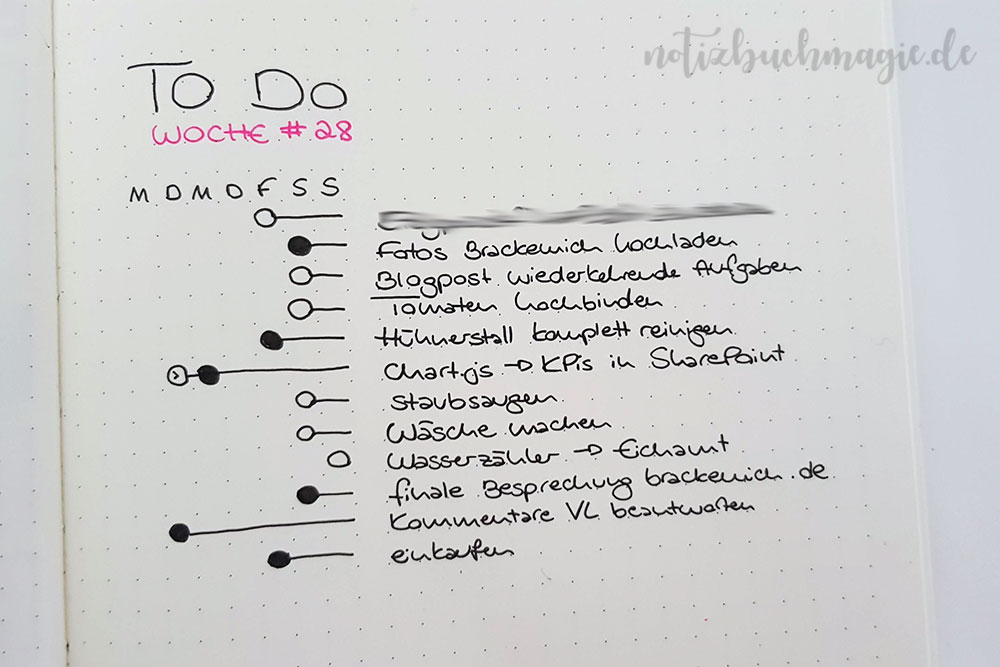 notizbuchmagie.de
TO DO
WOCHE #28
M D M D F S S
Fotos Brackemich hochladen
Blogpost wiederkehrende Aufgaben
Tomaten hochbinden
Hühnerstall komplett reinigen
Chart.js → KPIs in SharePoint
staubsaugen
Wäsche machen
Wasserzähler → Eichamt
finale Besprechung brackemich.de
Kommentare VL beantworten
einkaufen